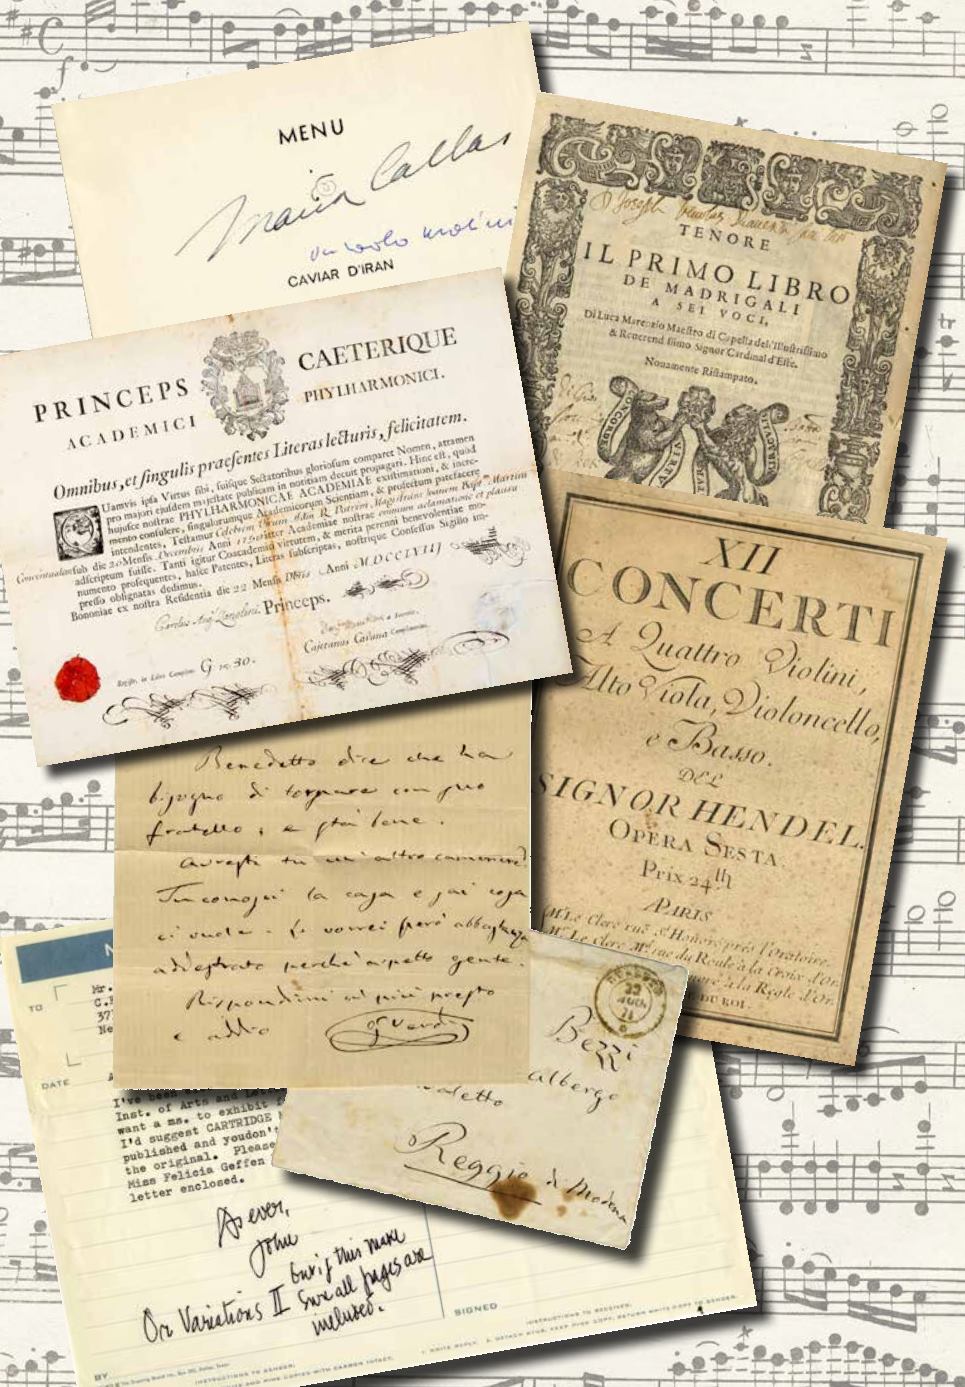 MENU
Maria Callas
CAVIAR D'IRAN
TENORE
IL PRIMO LIBRO
DE MADRIGALI
A SEI VOCI,
Di Luca Marenzio Maestro di Capella dell'Illustrissimo
& Reverendissimo Signor Cardinal d'Este.
Nouamente Ristampato.
PRINCEPS CAETERIQUE
ACADEMICI PHYLHARMONICI.
Omnibus, et singulis praesentes Literas lecturis, felicitatem.
QUamvis ipsa Virtus sibi, suisque Sectatoribus gloriosum comparet Nomen, attamen
pro majori ejusdem majestate publicam in notitiam decuit propagari. Hinc est, quod
hujusce nostrae PHYLHARMONICAE ACADEMIAE existimationi, & incre-
mento consulere, singulorumque Academicorum Scientiam, & profectum patefacere
intendentes, Testamur
sub die 20 Mensis Decembris Anni 1758 inter Academiae nostrae
adscriptum fuisse. Tanti igitur Coacademici virtutem, & merita perenni benevolentiae mo-
numento prosequentes, hasce Patentes, Literas subscriptas, nostrique Consessus Sigillo im-
presso obsignatas dedimus.
Bononiae ex nostra Residentia die 22 Mensis Anni MDCCLVIIJ
Princeps.
G 30.
XII
CONCERTI
A Quattro Violini,
Alto Viola, Violoncello,
e Basso.
DEL
SIGNOR HENDEL.
OPERA SESTA
Prix 24
A PARIS
Mr. Le Clerc rue St Honoré près l'Oratoire.
Mr. Le Clerc Md. rue du Roule à la Croix d'Or.
à la Règle d'Or.
DU ROI.
Benedetto dice che ha
bisogno di tornare con suo
fratello, e stai bene.
Avresti tu un'altro cameriere?
Tu conosci la casa e sai cosa
ci vuole. Lo vorrei però abbastanza
addestrato perchè aspetto gente.
Rispondimi al più presto
e addio G Verdi
Bezzi
Albergo
Reggio di Modena
TO
Mr.
DATE
I've been
Inst. of Arts and
want a ms. to exhibit
I'd suggest CARTRIDGE
published and youdon't
the original. Please
Miss Felicia Geffen
letter enclosed.
As ever,
John
Or Variations II but if this make
sure all pages are
included.
SIGNED
BY
INSTRUCTIONS TO SENDER:
INSTRUCTIONS TO RECEIVER: